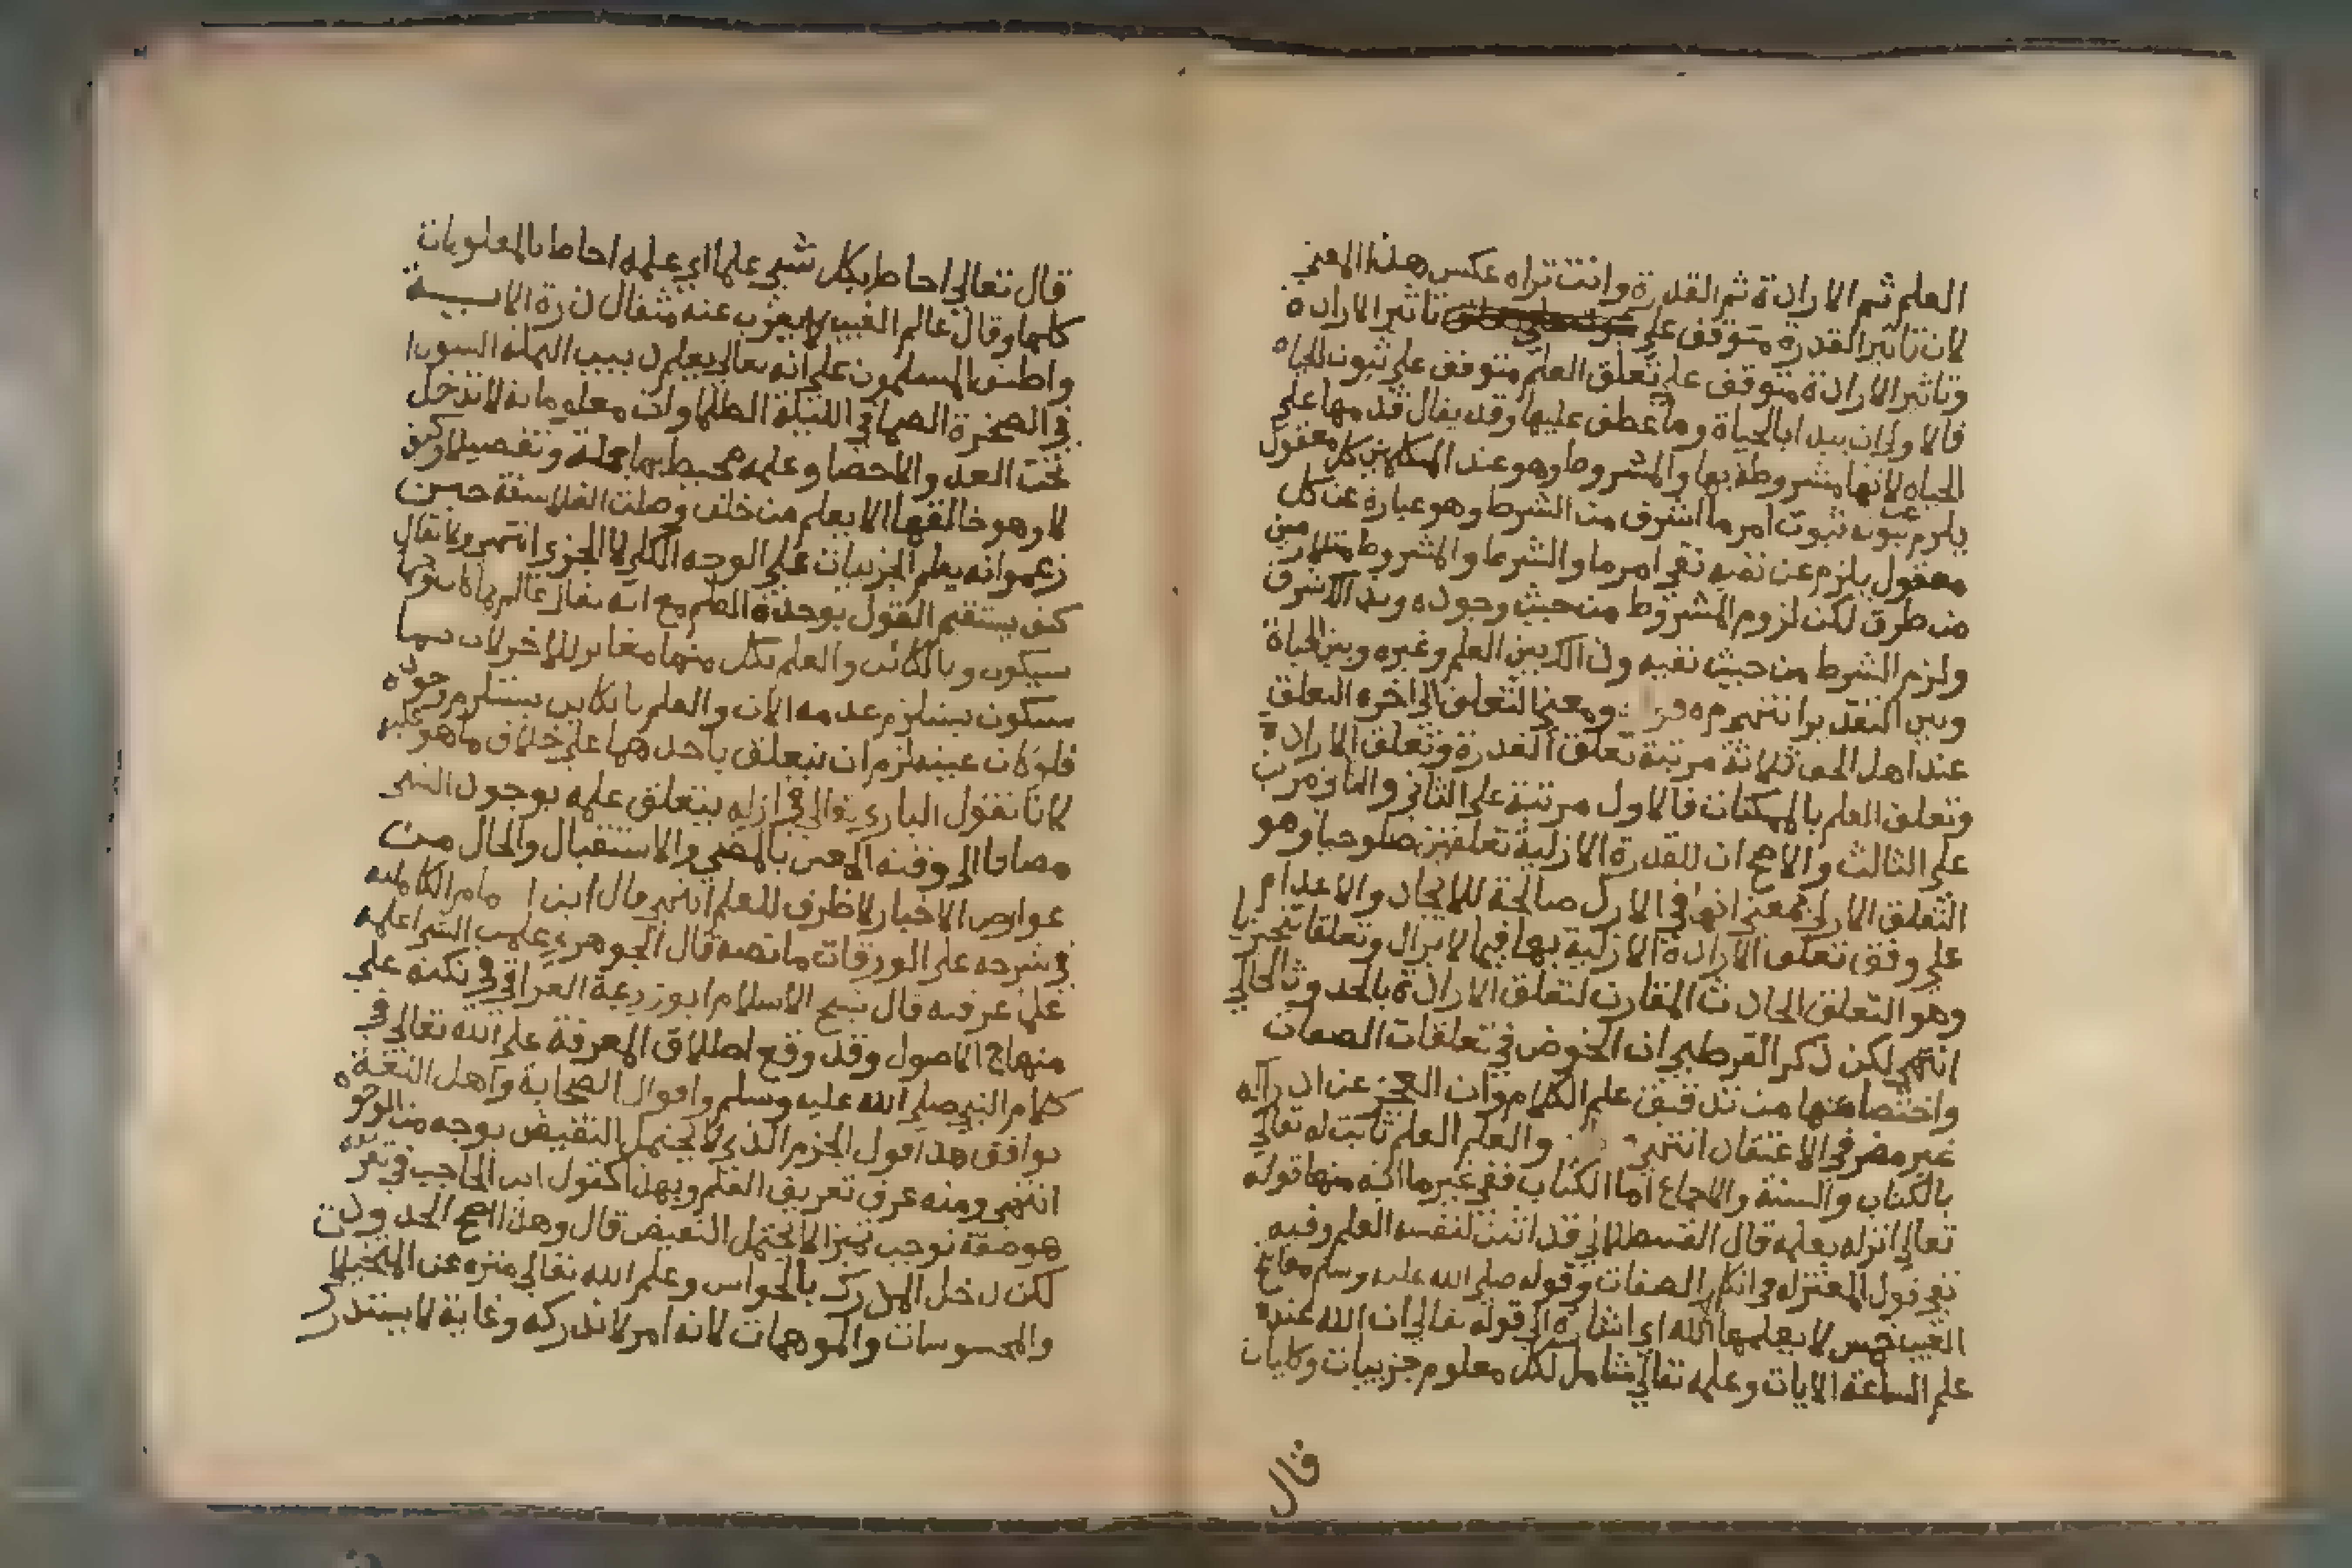 العلم ثم الارادة ثم القدرة وانت تراه عكس هذا المعني
لان تاثير القدرة متوقف علي تاثير الاراده
وتاثير الارادة متوقف علي تعلق العلم متوقف علي ثبوت الحياه
فالاولي ان يبدا بالحياة وما عطف عليها وقد يقال قدمها علي
الحياه لانها مشروطة بها والمشروط وهو عند المتكلمين كل معقول
يلزم عن ثبوته ثبوت امر ما اشرف من الشرط وهو عبارة عن كل
معقول يلزم عن نفيه نفي امر ما والشرط والمشروط متلازمين
من طرق لكن لزوم المشروط من حيث وجوده وبدا الاشرف
ولزم الشرط من حيث نفيه وذلك بين العلم وغيره وبين الحياة
وبين التقدير انتهي ومعني التعلق الي اخره التعلق
عند اهل الحق ثلاثة مرتبة تعلق القدرة وتعلق الارادة
وتعلق العلم بالممكنات فالاول مرتبة علي الثاني والثاني مرتب
علي الثالث والاصح ان للقدرة الازلية تعلقين صلوحيا وهو
التعلق الازلي بمعني انها في الازل صالحة للايجاد والاعدام
علي وفق تعلق الارادة الازلية بها فيما لا يزال وتعلقا تنجيزيا
وهو التعلق الحادث المقارن لتعلق الارادة بالحدوث الحالي
انتهي لكن ذكر القرطبي ان الخوض في تعلقات الصفات
واختصاصها من تدقيق علم الكلام وان العجز عن ادراكه
غير مضر في الاعتقاد انتهي والعلم العلم ثابت له تعالي
بالكتاب والسنة والاجماع اما الكتاب ففي غير ما اية منها قوله
تعالي انزله بعلمه قال القسطلاني قد اثبت لنفسه العلم وفيه
نفي قول المعتزله في انكار الصفات وقوله صلي الله عليه وسلم مفاتح
الغيب خمس لا يعلمها الا الله اي اشارة الي قوله تعالي ان الله عنده
علم الساعة الايات وعلمه تعالي شامل لكل معلوم جزييات وكليات
قال
قال تعالي احاط بكل شيي علما اي علمه احاط بالمعلومات
كلها وقال عالم الغيب لا يعزب عنه مثقال ذرة الاية
واطبق المسلمون علي انه تعالي يعلم دبيب النملة السودا
في الصخرة الصما في الليلة الظلما وان معلوماته لا تدخل
تحت العد والاحصا وعلمه محيط بها جملة وتفصيلا وكيف
لا وهو خالقها الا يعلم من خلق وضلت الفلاسفة حين
زعموا انه يعلم الجزييات علي الوجه الكلي لا الجزيي انتهي ولا يقال
كيف يستقيم القول بوحدة العلم مع انه تعالي عالم بما كان وبما
سيكون وبالكائن والعلم بكل منها مغاير للاخر لان بما
سيكون يستلزم عدمه الان والعلم بالكاين يستلزم وجوده
فلو كان عينه لزم ان يتعلق باحدهما علي خلاف ما هو عليه
لانا نقول الباري تعالي في ازله يتعلق علمه بوجود الشي
مضافا الي وقته المعين بالمضي والاستقبال والحال من
عوارض الاخبار لا ظرف للعلم انتهي قال ابن امام الكاملية
في شرحه علي الورقات ما نصه قال الجوهري علمت الشي اعلمه
علما عرفته قال شيخ الاسلام ابو زرعة العراقي في نكته علي
منهاج الاصول وقد وقع اطلاق المعرفة علي الله تعالي في
كلام النبي صلي الله عليه وسلم واقوال الصحابة واهل اللغة
يوافق هذا قول الجزم الذي لا يحتمل النقيض بوجه من الوجوه
انتهي ومنه عرف تعريف العلم وبهذا كقول ابن الحاجب في تعريفه
هو صفة توجب تمييزا لا يحتمل النقيض قال وهذا اصح الحدود
لكن دخل المدرك بالحواس وعلم الله تعالي منزه عن التخيلات
والمحسوسات والموهمات لانه امر لا ندركه وغاية لا يستدرك